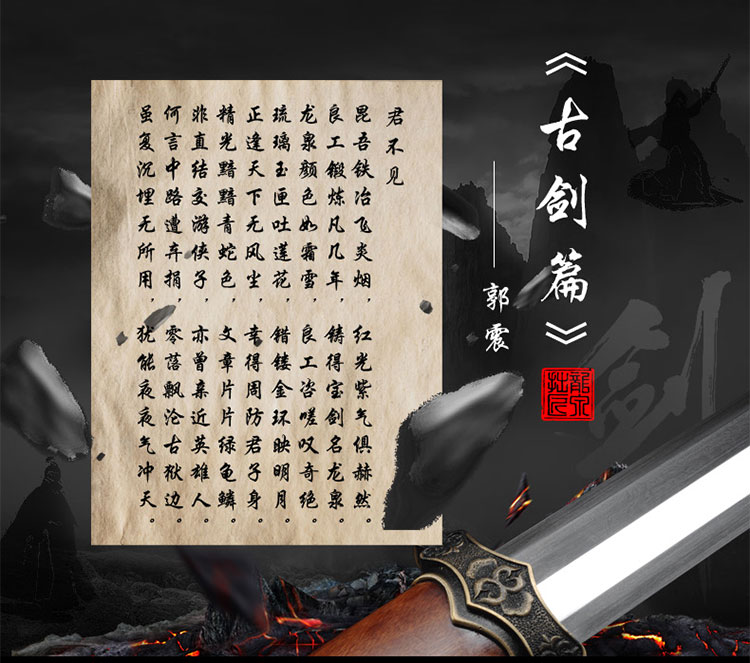 《古剑篇》
郭震
君不见
昆吾铁冶飞炎烟，红光紫气俱赫然。
良工锻炼凡几年，铸得宝剑名龙泉。
龙泉颜色如霜雪，良工咨嗟叹奇绝。
琉璃玉匣吐莲花，错镂金环映明月。
正逢天下无风尘，幸得周防君子身。
精光黯黯青蛇色，文章片片绿龟鳞。
非直结交游侠子，亦曾亲近英雄人。
何言中路遭弃捐，零落飘沦古狱边。
虽复沉埋无所用，犹能夜夜气冲天。
剑